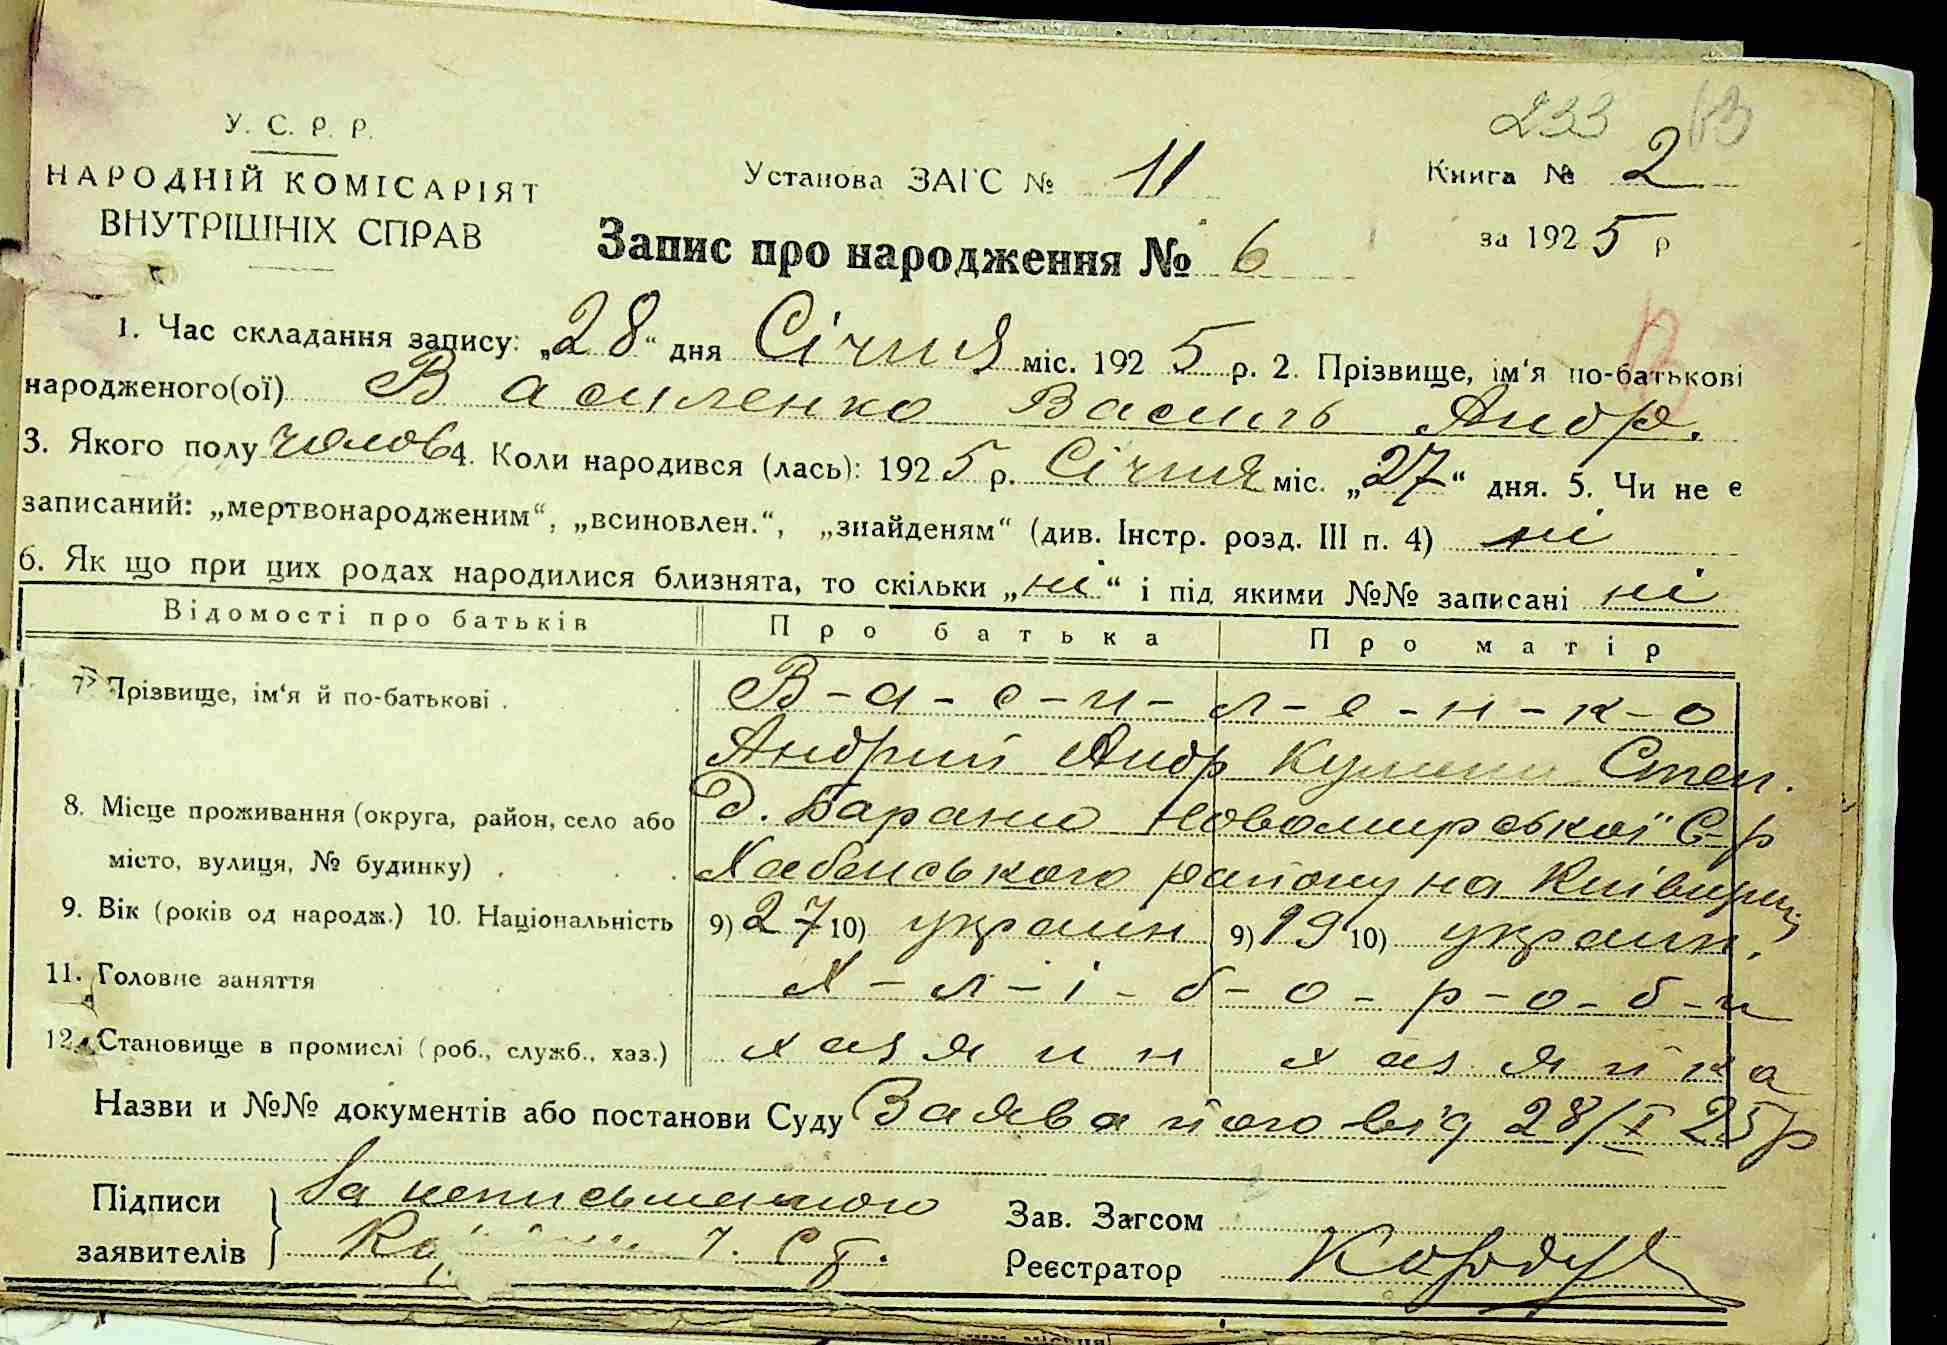 233 63
У. С. Р. Р.
НАРОДНІЙ КОМІСАРІЯТ
ВНУТРІШНІХ СПРАВ
Установа ЗАГС № 11
Книга № 2
за 1925 р
Запис про народження № 6
1. Час складання запису: „28“ дня Січня міс. 1925 р. 2. Прізвище, ім‘я по-батькові
народженого(ої) Василенко Василь Андр.
3. Якого полу чолов 4. Коли народився (лась): 1925 р. Січня міс. „27“ дня. 5. Чи не є
записаний: „мертвонародженим“, „всиновлен.“, „знайденям“ (див. Інстр. розд. III п. 4) ні
6. Як що при цих родах народилися близнята, то скільки „ні“ і під якими №№ записані ні
Відомості про батьків Про батька Про матір
7 Прізвище, ім‘я й по-батькові . В-а-с-и-л-е-н-к-о
Андрий Андр Степ.
8. Місце проживання (округа, район, село або д. Новомирської С-р
місто, вулиця, № будинку) . . . Хабенського району на Київщині
9. Вік (років од народж.) 10. Національність 9) 27 10) украин 9) 19 10) украин.
11. Головне заняття Х-л-і-б-о-р-о-б-и
12. Становище в промислі (роб., служб., хаз.) хазяин хазяйка
Назви и №№ документів або постанови Суду Заява його від 28/I 25р
Підписи заявителів За неписьменного
Зав. Загсом
Реєстратор